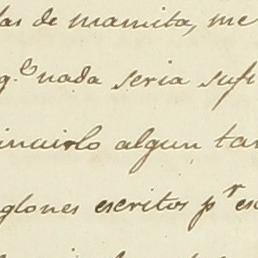 las de mamita, me
q.e nada seria sufi
incirlo algun tan
glones escritos p.r es